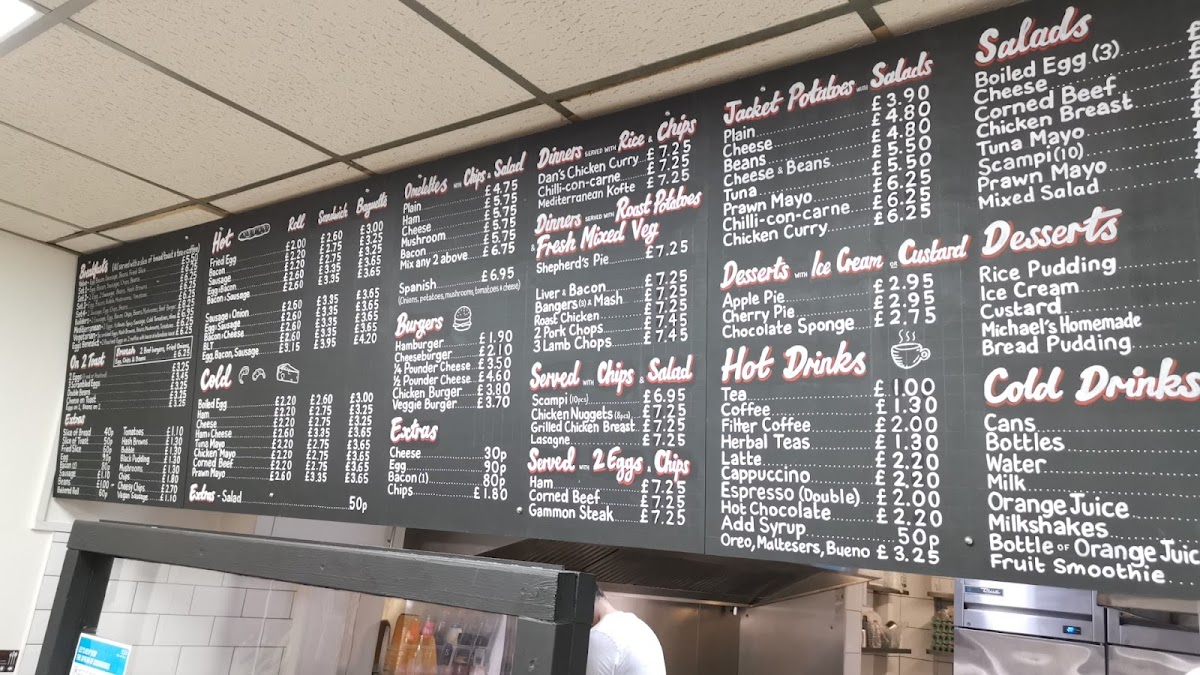 Breakfasts
On 2 Toast
£3.25
Double Beans
Cheese on Toast
Brunch
£6.25
Extras
Slice of Bread 40p
Slice of Toast 50p
Fried Slice 60p
Egg 90p
Bacon (1)
Sausage £1.10
Beans
Buttered Roll 60p
Tomatoes £1.10
Hash Browns £1.30
Bubble £1.30
Black Pudding £1.30
Mushrooms £1.30
Chips
Cheesy Chips £2.70
Vegan Sausage £1.10
Hot
Roll Sandwich Baguette
Fried Egg £2.00 £2.60 £3.00
Bacon £2.20 £2.75 £3.25
Sausage £2.20 £2.75 £3.25
Egg & Bacon
Bacon & Sausage
Sausage & Onion
Egg & Sausage
Bacon & Cheese
BLT
Egg, Bacon, Sausage £3.15 £3.95 £4.20
Cold
Boiled Egg £2.20 £2.60 £3.00
Ham £2.20 £2.75 £3.25
Cheese £2.20 £2.75 £3.25
Ham & Cheese £2.60 £3.35 £3.65
Tuna Mayo £2.20 £2.75 £3.65
Chicken Mayo £2.20 £2.75 £3.65
Corned Beef £2.20 £2.75 £3.65
Prawn Mayo £2.60 £3.35 £3.65
Extras - Salad 50p
Omelettes with Chips & Salad
Plain £4.75
Ham £5.75
Cheese £5.75
Mushroom £5.75
Bacon £5.75
Mix any 2 above £6.75
Spanish £6.95
(Onions, potatoes, mushrooms, tomatoes & cheese)
Burgers
Hamburger £1.90
Cheeseburger £2.10
¼ Pounder Cheese £3.50
½ Pounder Cheese £4.60
Chicken Burger £3.80
Veggie Burger £3.70
Extras
Cheese 30p
Egg 90p
Bacon (1) 80p
Chips £1.80
Dinners served with Rice & Chips
Dan's Chicken Curry £7.25
Chilli-con-carne £7.25
Mediterranean Kofte £7.25
Dinners served with Roast Potatoes
& Fresh Mixed Veg
Shepherd's Pie £7.25
Liver & Bacon £7.25
Bangers (3) & Mash £7.25
Roast Chicken £7.25
2 Pork Chops £7.45
3 Lamb Chops £7.45
Served with Chips & Salad
Scampi (10pcs) £6.95
Chicken Nuggets (8pcs) £7.25
Grilled Chicken Breast £7.25
Lasagne £7.25
Served with 2 Eggs & Chips
Ham £7.25
Corned Beef £7.25
Gammon Steak £7.25
Jacket Potatoes with Salads
Plain £3.90
Cheese £4.80
Beans £4.80
Cheese & Beans £5.50
Tuna £5.50
Prawn Mayo £6.25
Chilli-con-carne £6.25
Chicken Curry £6.25
Desserts with Ice Cream or Custard
Apple Pie £2.95
Cherry Pie £2.95
Chocolate Sponge £2.75
Hot Drinks
Tea £1.00
Coffee £1.30
Filter Coffee £2.00
Herbal Teas £1.30
Latte £2.20
Cappuccino £2.20
Espresso (Double) £2.00
Hot Chocolate £2.20
Add Syrup 50p
Oreo, Maltesers, Bueno £3.25
Salads
Boiled Egg (3)
Cheese
Corned Beef
Chicken Breast
Tuna Mayo
Scampi (10)
Prawn Mayo
Mixed Salad
Desserts
Rice Pudding
Ice Cream
Custard
Michael's Homemade
Bread Pudding
Cold Drinks
Cans
Bottles
Water
Milk
Orange Juice
Milkshakes
Bottle of Orange Juic
Fruit Smoothie